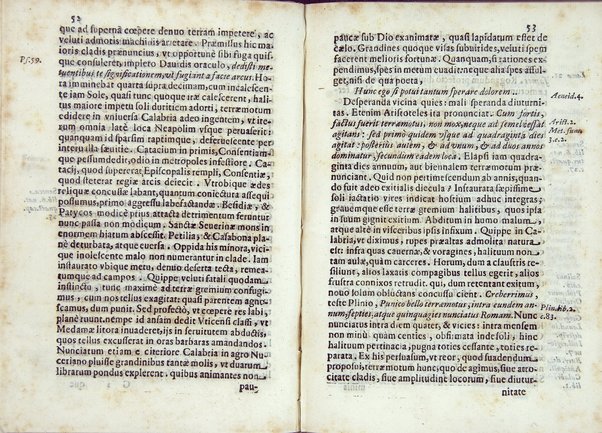 52
que ad supernâ cœpere denuo terram impetere, ac
veluti admotis machinis arietare. Præmissus hic ma-
ioris cladis prænuncius, vt impendenti sibi fuga quis-
que consuleret, impleto Dauidis oraculo, dedisti me-
Ps. 59.
tuentibus te significationem, vt fugiant a facie arcus. Ho-
ra imminebat quarta supra decimam, cum indalescen-
te iam Sole, quasi tunc quoque iræ calescerent, hali-
tus maiore impetu soli doritiem adorti, terræmotum
edidere in vniuersa Calabria adeo ingentem, vt iter-
rum omnia late loca Neapolim vsque peruaserit:
quanquam id sparsim raptimque, deserueleente per
interualla illa sæuitie. Catacium in primis, Consentiam-
que pessumdedit, odio in metropoles infestiore. Ca-
tacij, quod supererat Episcopalis templi, Consentiæ,
quod steterat regiæ arcis deiecit. Vtrobique ædes
reliquæ concussæ labant, quantum coniectura assequi
possumus, primo aggressu labefactandæ. Besidiæ, &
Patycos modicè prius attacta detrimentum ferunt
nunc passa non modicum. Sanctæ Seuerinæ mons in
enormem hiatum abscessit. Petilia, & Casabona pla-
nè deturbata, atque euersa. Oppida his minora, vici-
que inolescente malo non numerantur in clade. Iam
instaurato vbique metu, denuo deserta tecta, remea-
tumque ad campos. Quippe veluti fatali quodam
instinctu, tunc maximè ad terræ gremium confugi-
mus, cum nos tellus exagitat: quasi parentem agnos-
camus, dum punit. Sed profectò, vt cœpere res labi,
planè ruunt. nempe id ansam dedit Vticensis classi, vt
Medamæ litora inuaderet, iis in seruitutem abductis,
quos tellus excusserat in oras barbaras amandandos.
Nunciatum etiam e citeriore Calabria in agro Nuce-
riano pluisse grandinibus tantæ molis, vt duarum
libratum pondus explerent. quibus animantes non
pau-
53
paucæ sub Dio exanimatæ, quasi lapidatum esset de
cælo. Grandines quoque visas subuirides, veluti spem
facerent melioris fortunæ. Quanquam, si rationes ex-
pendimus, spes in metum euadit: neque alia spes affulget,
nisi de qua poeta.
Hunc ego si potui tantum sperare dolorem.
Aeneid. 4.
Desperanda vicina quies: mali speranda diuturni-
tas. Etenim Aristoteles ita pronunciat. Cum fortis,
Arist. 2.
factus fuerit terræmotus, non mox, neque ad semel cessat
Met. sum
agitans: sed primò quidem vsque ad quadraginta dies
3. c. 2.
agitat: posterius autem, & ad vnum, & ad duos annos
dominatur, secundum eadem loca. Elapsi iam quadra-
ginta dies annuum, aut biennalem terræmotum præ-
nunciant. Quid non pertimescendum ab annis, quando
odeo exitialis dies dicula? Instaurata sæpissime
soli iactatio vires indicat hostium adhuc integras;
grauemque esse terræ gremium halitibus, quos ipsa
in suum gignit exitium. Abditum in humo malum,
atque altè in visceribus ipsis infixum. Quippe in Ca-
labria, vt diximus, rupes præaltas admolita natura
est infra quas cauernæ, & voragines, halituum non
tam aulæ, quàm carceres. Horum, dum a claustris re-
siliunt, alios laxatis compagibus tellus egerit, alios
frustra connixos rursum recondit, dum obitet exitum,
nouo Iolam obluctans conclusu cient. Creberrimus,
teste Plinio, Punico bello terræmotus, intra eundem an-
Plin. lib. 2.
num, septies, atque quinquagies nunciatus Romam. Nunc
c. 83.
nunciatus intra diem quater, & vicies: intra mensem
non minùs quam centies, obfirmata indesoli, hinc
halituum pertinacia; pugna toties cessante, toties re-
parata. Ex his persuasum, vt reor, quod suadendum
propono, terræmotum hunc, quo de agimus, siue atro-
citate cladis, siue amplitudine locorum, siue diutur-
nitate